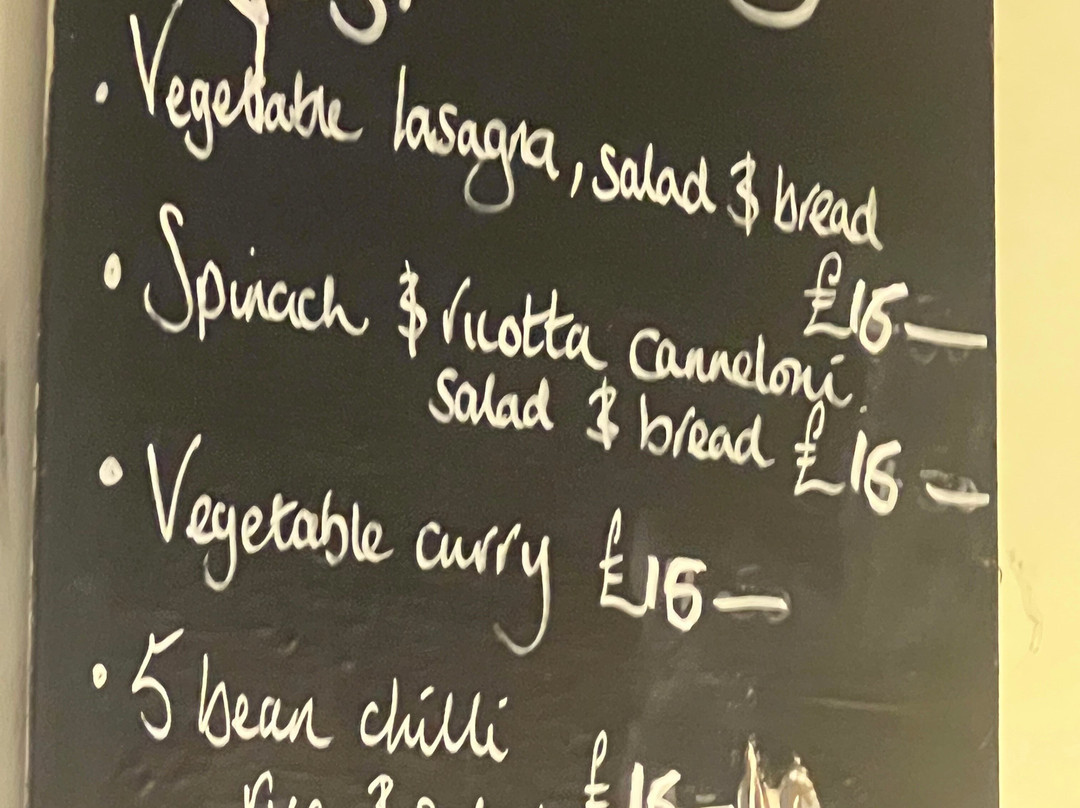 • Vegetable lasagna, salad & bread
£16—
• Spinach & ricotta canneloni
salad & bread £16—
• Vegetable curry £16—
• 5 bean chilli
£16—